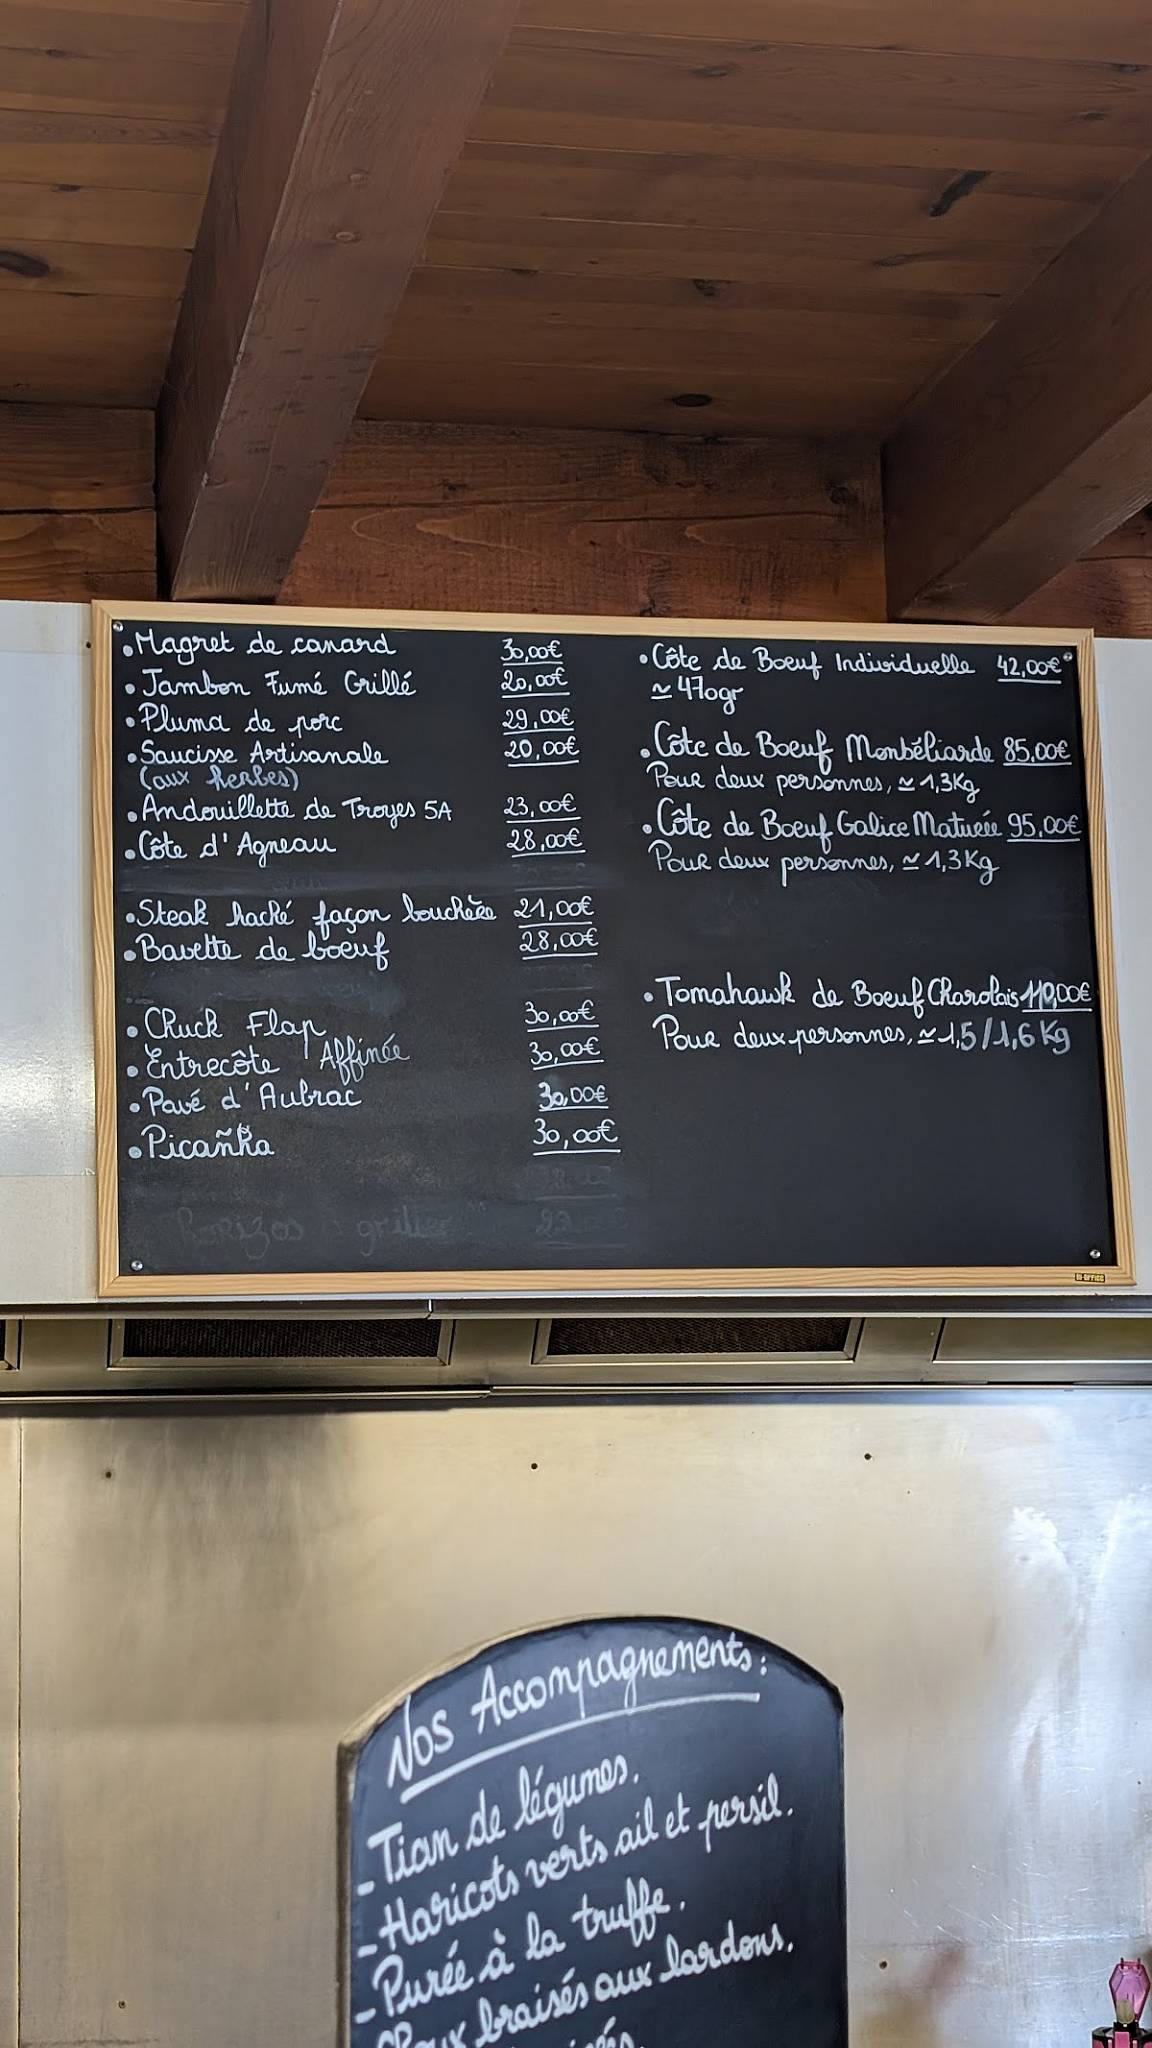 •Magret de canard 30,00€
•Jambon Fumé Grillé 20,00€
•Pluma de porc 29,00€
•Saucisse Artisanale 20,00€
(aux herbes)
•Andouillette de Troyes 5A 23,00€
•Côte d'Agneau 28,00€
•Steak haché façon bouchère 21,00€
•Bavette de boeuf 28,00€
•Chuck Flap 30,00€
•Entrecôte Affinée 30,00€
•Pavé d'Aubrac 30,00€
•Picañha 30,00€
griller
•Côte de Boeuf Individuelle 42,00€
≃ 470gr
•Côte de Boeuf Monbéliarde 85,00€
Pour deux personnes, ≃ 1,3Kg
•Côte de Boeuf Galice Maturée 95,00€
Pour deux personnes, ≃ 1,3Kg
•Tomahawk de Boeuf Charolais 110,00€
Pour deux personnes, ≃ 1,5/1,6 Kg
BI-OFFICE
Nos Accompagnements:
- Tian de légumes.
- Haricots verts ail et persil.
- Purée à la truffe.
braisés aux lardons.